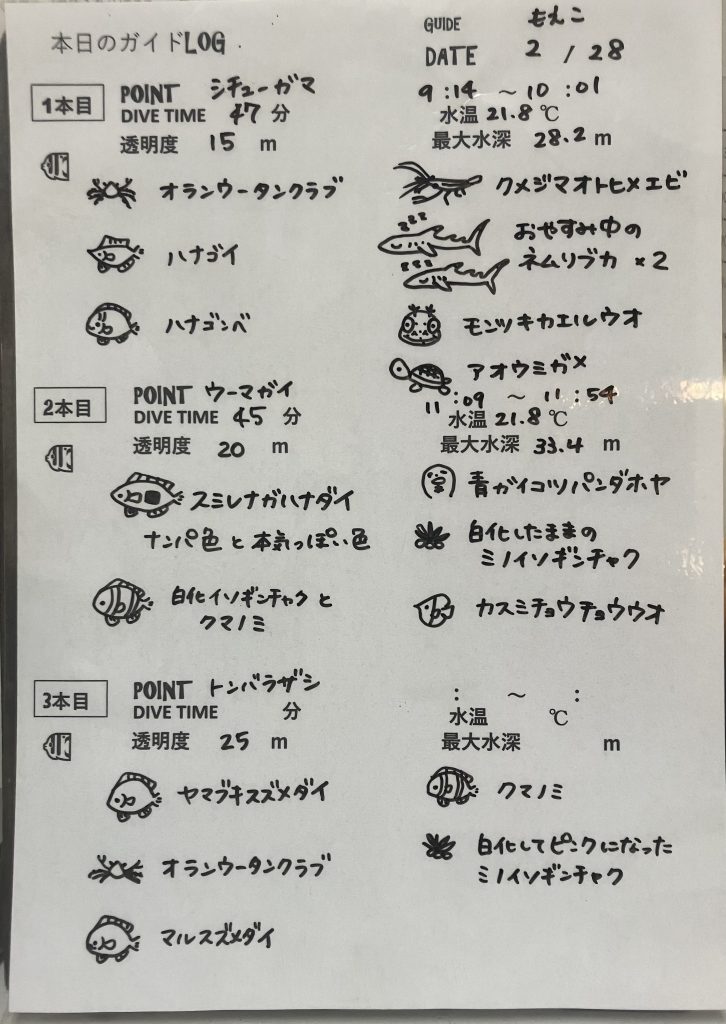 本日のガイドLOG
GUIDE もえこ
DATE 2 / 28
1本目
POINT シチューガマ
DIVE TIME 47 分
透明度 15 m
9:14 ～ 10:01
水温 21.8 ℃
最大水深 28.2 m
オランウータンクラブ
ハナゴイ
ハナゴンベ
クメジマオトヒメエビ
zzz
おやすみ中の
ネムリブカ ×2
zzz
モンツキカエルウオ
アオウミガメ
2本目
POINT ウーマガイ
DIVE TIME 45 分
透明度 20 m
11:09 ～ 11:54
水温 21.8 ℃
最大水深 33.4 m
スミレナガハナダイ
ナンパ色と本気っぽい色
白化イソギンチャクと
クマノミ
青ガイコツパンダホヤ
白化したままの
ミノイソギンチャク
カスミチョウチョウウオ
3本目
POINT トンバラザシ
DIVE TIME 分
透明度 25 m
: ～ :
水温 ℃
最大水深 m
ヤマブキスズメダイ
オランウータンクラブ
マルスズメダイ
クマノミ
白化してピンクになった
ミノイソギンチャク